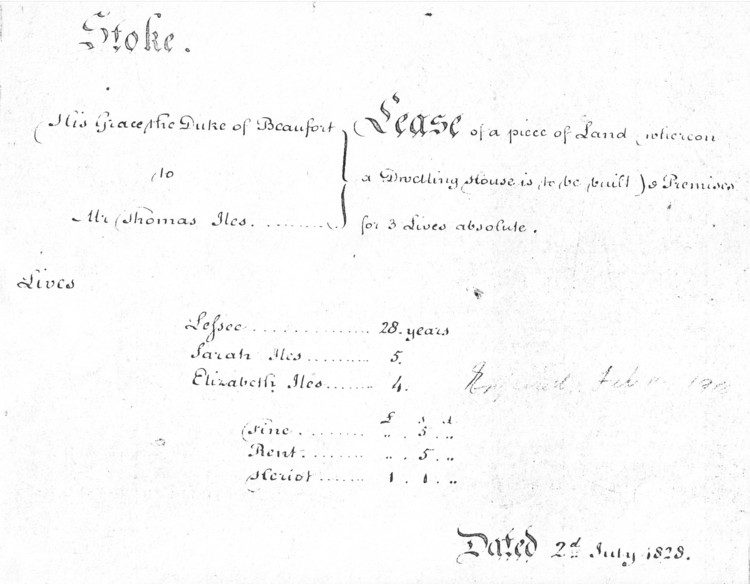 Stoke.
His Grace the Duke of Beaufort
to
Mr Thomas Iles.
Lease of a piece of Land (whereon
a Dwelling House is to be built) & Premises
for 3 Lives absolute.
Lives
Lessee 28. years
Sarah Iles 5.
Elizabeth Iles 4.
£ s d
Fine „ . 5 . „
Rent „ . 5 . „
Heriot 1 . 1 . „
Dated 2d July 1828.